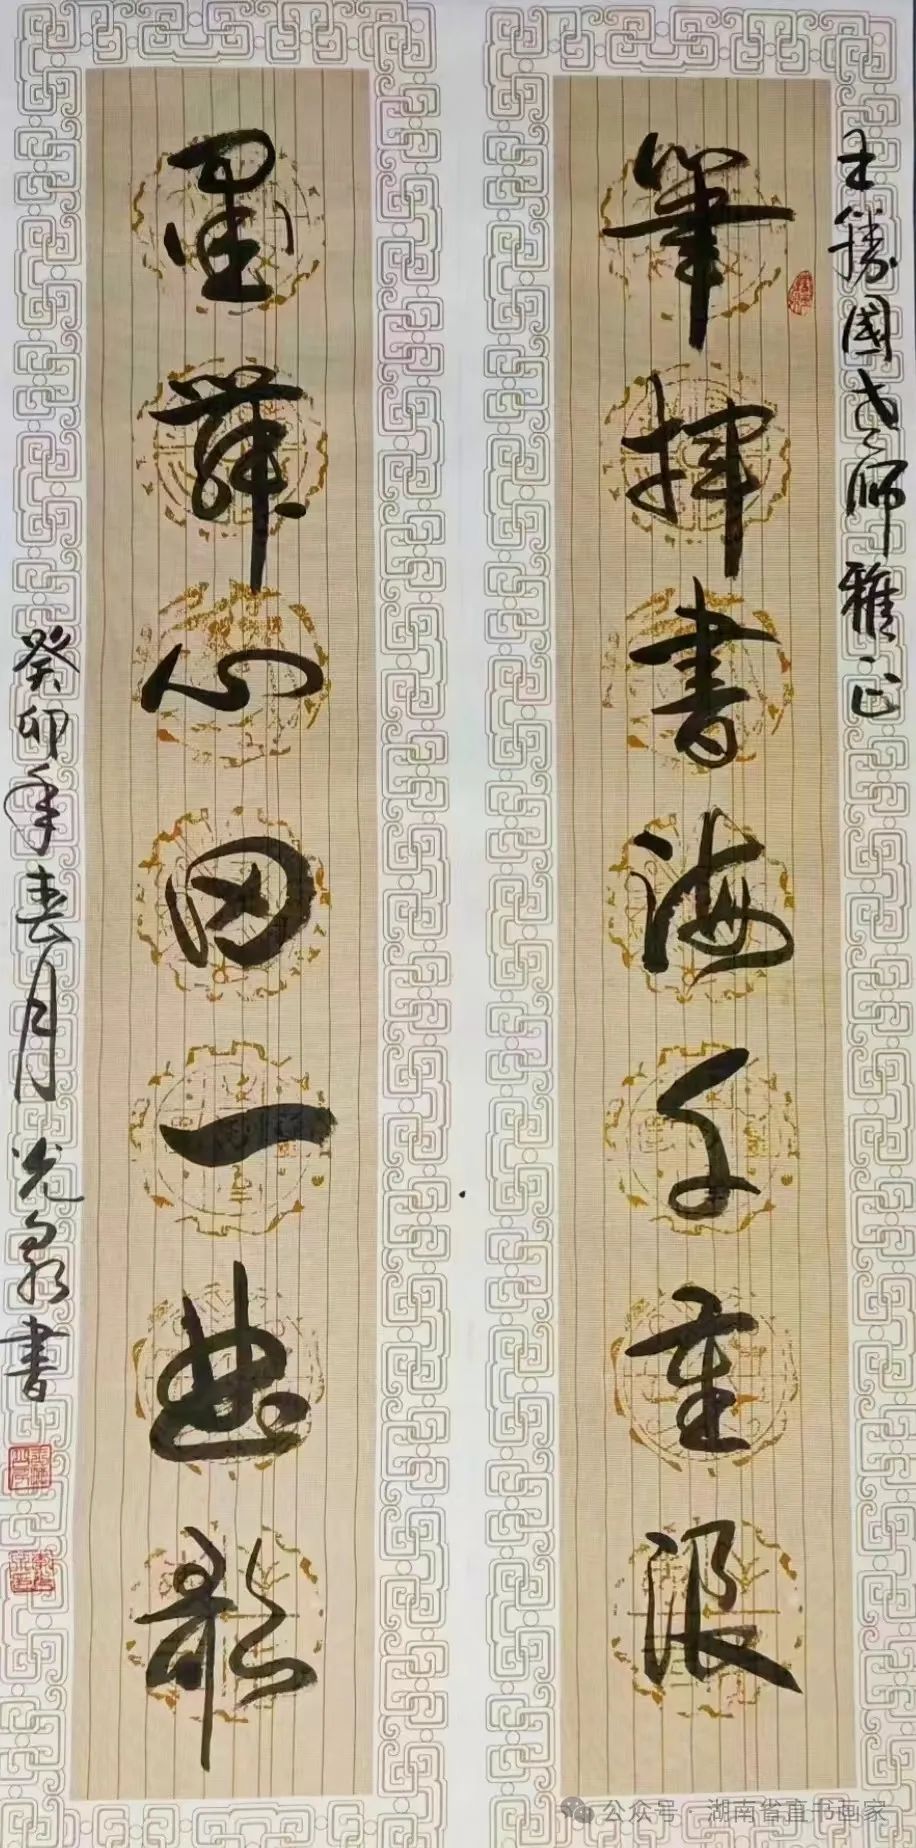 王勝國老师雅正
筆揮書海千重浪
墨舞心田一曲歌
癸卯年春月光泉書
公众号·湖南省直书画家